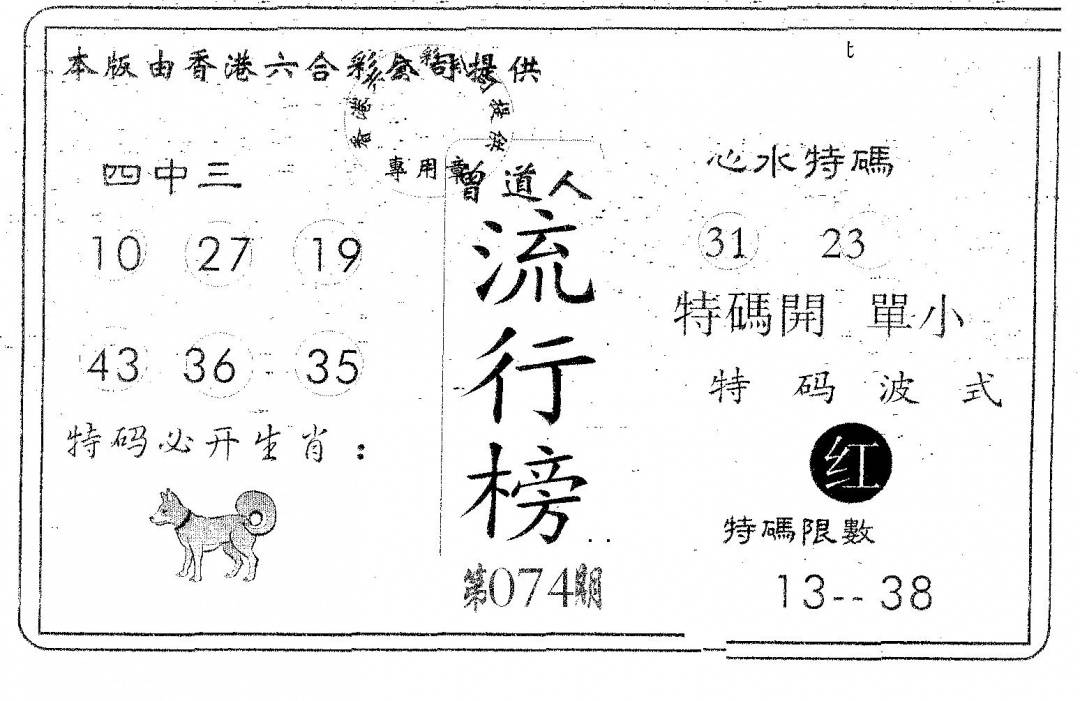 本版由香港六合彩公司提供
專用章
四中三
10 27 19
43 36 35
特码必开生肖：
曾道人
流行榜
第074期
心水特碼
31 23
特碼開 單小
特码波式
红
特碼限數
13--38